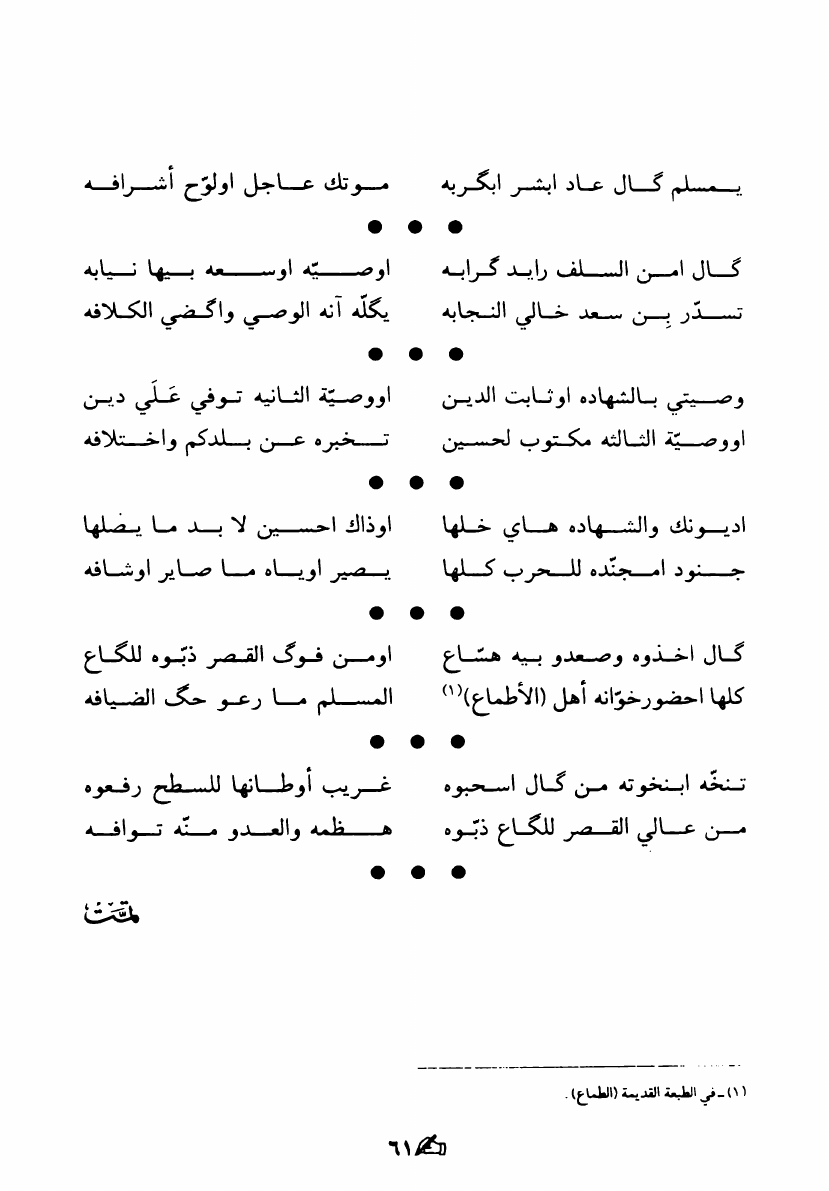 يمسلم گال عاد ابشر ابگربه موتك عاجل اولوّح أشرافه
● ● ●
گال امن السلف رايد گرابه اوصيّه اوسعه بيها نيابه
تسدّر بِن سعد خالي النجابه يگلّه آنه الوصي واگضي الكلافه
● ● ●
وصيتي بالشهاده اوثابت الدين اووصيّة الثانيه توفي عَلَي دين
اووصيّة الثالثه مكتوب لحسين تخبره عن بلدكم واختلافه
● ● ●
اديونك والشهاده هاي خلها اوذاك احسين لا بد ما يضلها
جنود امجنّده للحرب كلها يصير اوياه ما صاير اوشافه
● ● ●
گال اخذوه وصعدو بيه هسّاع اومن فوگ القصر ذبّوه للگاع
كلها احضورخوّانه أهل (الأطماع)(١) المسلم ما رعو حگ الضيافه
● ● ●
تنخّه ابنخوته من گال اسحبوه غريب أوطانها للسطح رفعوه
من عالي القصر للگاع ذبّوه هظمه والعدو منّه توافه
● ● ●
تمّت
(١) ـ في الطبعة القديمة (الطماع).
٦١